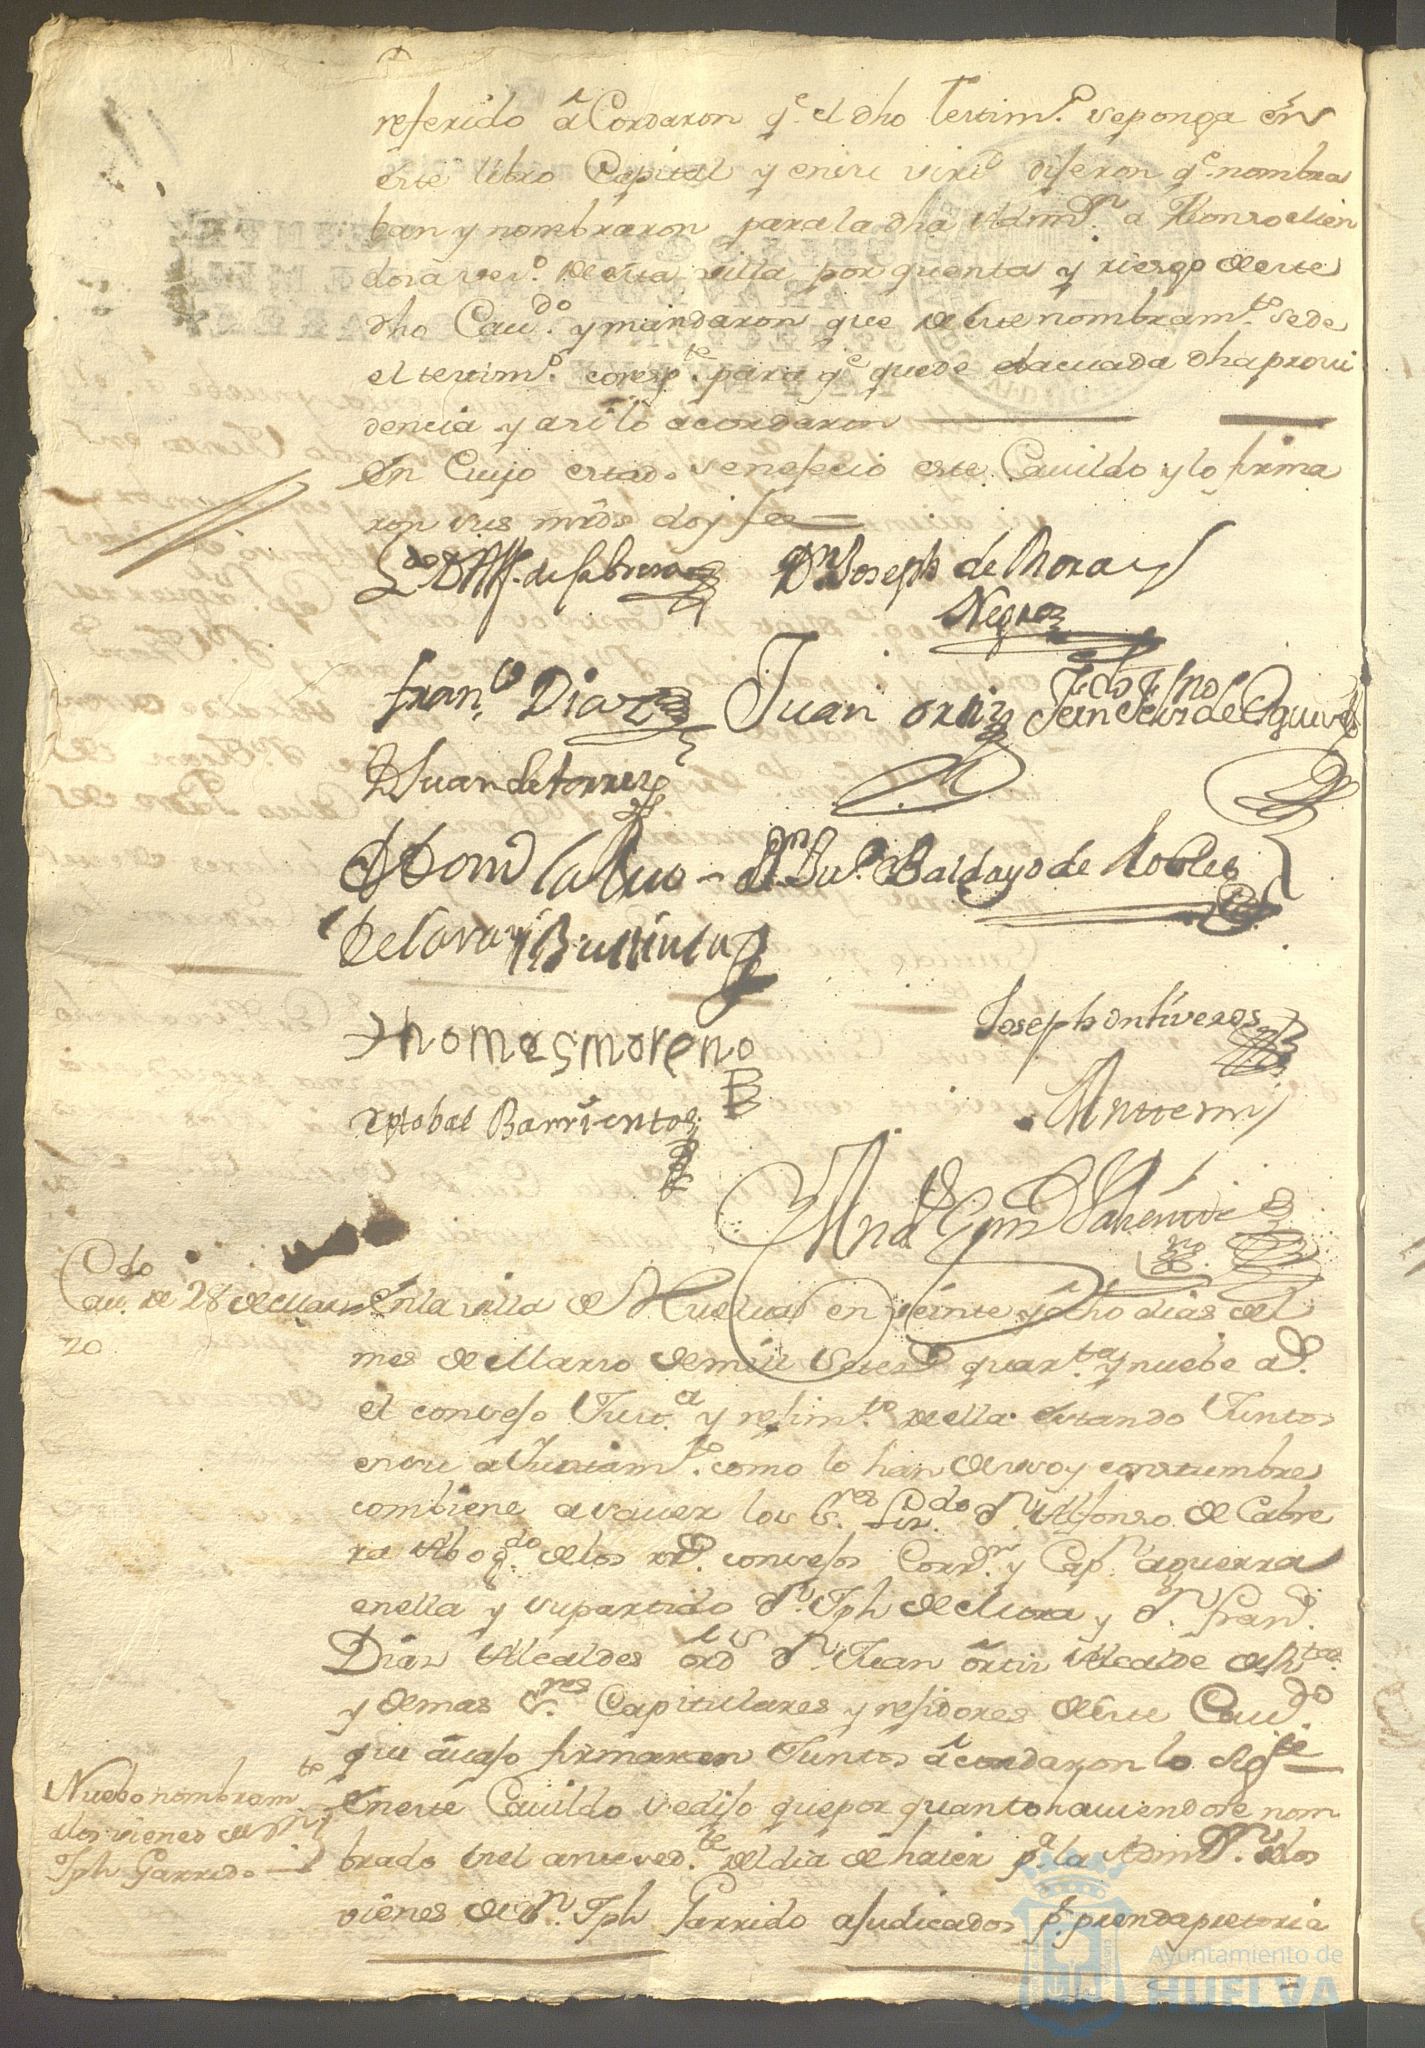 referido aCordaron q.e el dho testim.o se ponga en
este libro Capitul y en su virt.d dijeron q.e nombra
ban y nombraron para la dha Adm.on a Alonso elien
dosa vez.o de esta villa por quenta y riesgo de este
dho Cav.do y mandaron que de este nombram.to se de
el testim.o coresp.te para q.e quede evacuada dha provi
dencia y asi lo acordaron
En Cuyo estado se nefecio este Cavildo y lo firma
ron sus mrds doy fee
L.do D. Alf. de Cabrera D.n Joseph de Mora y
Negro
Fran.co Diaz Juan ortiz
D Juan de torres
D.n Ju.o Baldayo de Robles
Thomas moreno
Joseph ontiveros
Xptobal Barrientos
Ante mi
And.s
Cav.do de 28 de Mar
zo
En la villa de Huelva en veinte y ocho dias del
mes de Marzo de mill setez.s quar.ta y nuebe a.s
el consejo Just.a y rejim.to de ella estando Juntos
en su aJuntam.to como lo han de uso y costumbre
combiene a saver los S.res Liz.do d.n Alfonso de Cabre
ra Abog.do de los r.s consejos Corr.or y Cap.n a guerra
en ella y su partido d.n Jph de Mora y d.n Fran.co
Diaz Alcaldes ord.s d.n Juan ortiz Alcalde de la
y demas S.res Capitulares y rejidores de este Cav.do
que avajo firmaron Juntos acordaron lo sig.te
Nuebo nombram.to
a los vienes de D.n
Jph Garrido
En este Cavildo se dijo que por quanto haviendose nom
brado en el anteced.te del dia de haier p.a la Adm.on de los
vienes de D.n Jph Garrido ajudicados p.r prenda pretoria
Ayuntamiento de
HUELVA